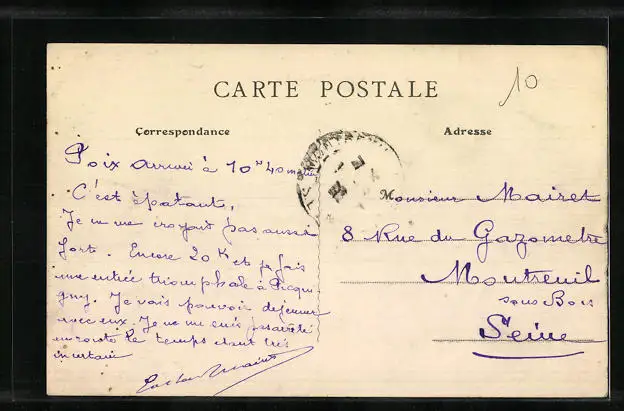 CARTE POSTALE
10
Correspondance
Adresse
Poix arrivée à 10 H 40 matin
C'est épatant,
Je ne me croyait pas aussi
forte. Encore 20 K et je fais
une entrée triomphale à Picqui
gny. Je vais pouvoir dejeuner
avec eux. Je ne me suis pas arrêté
en route le temps étant très
incertain
Monsieur Mairet
8 Rue du Gazometre
Montreuil
sous Bois
Seine